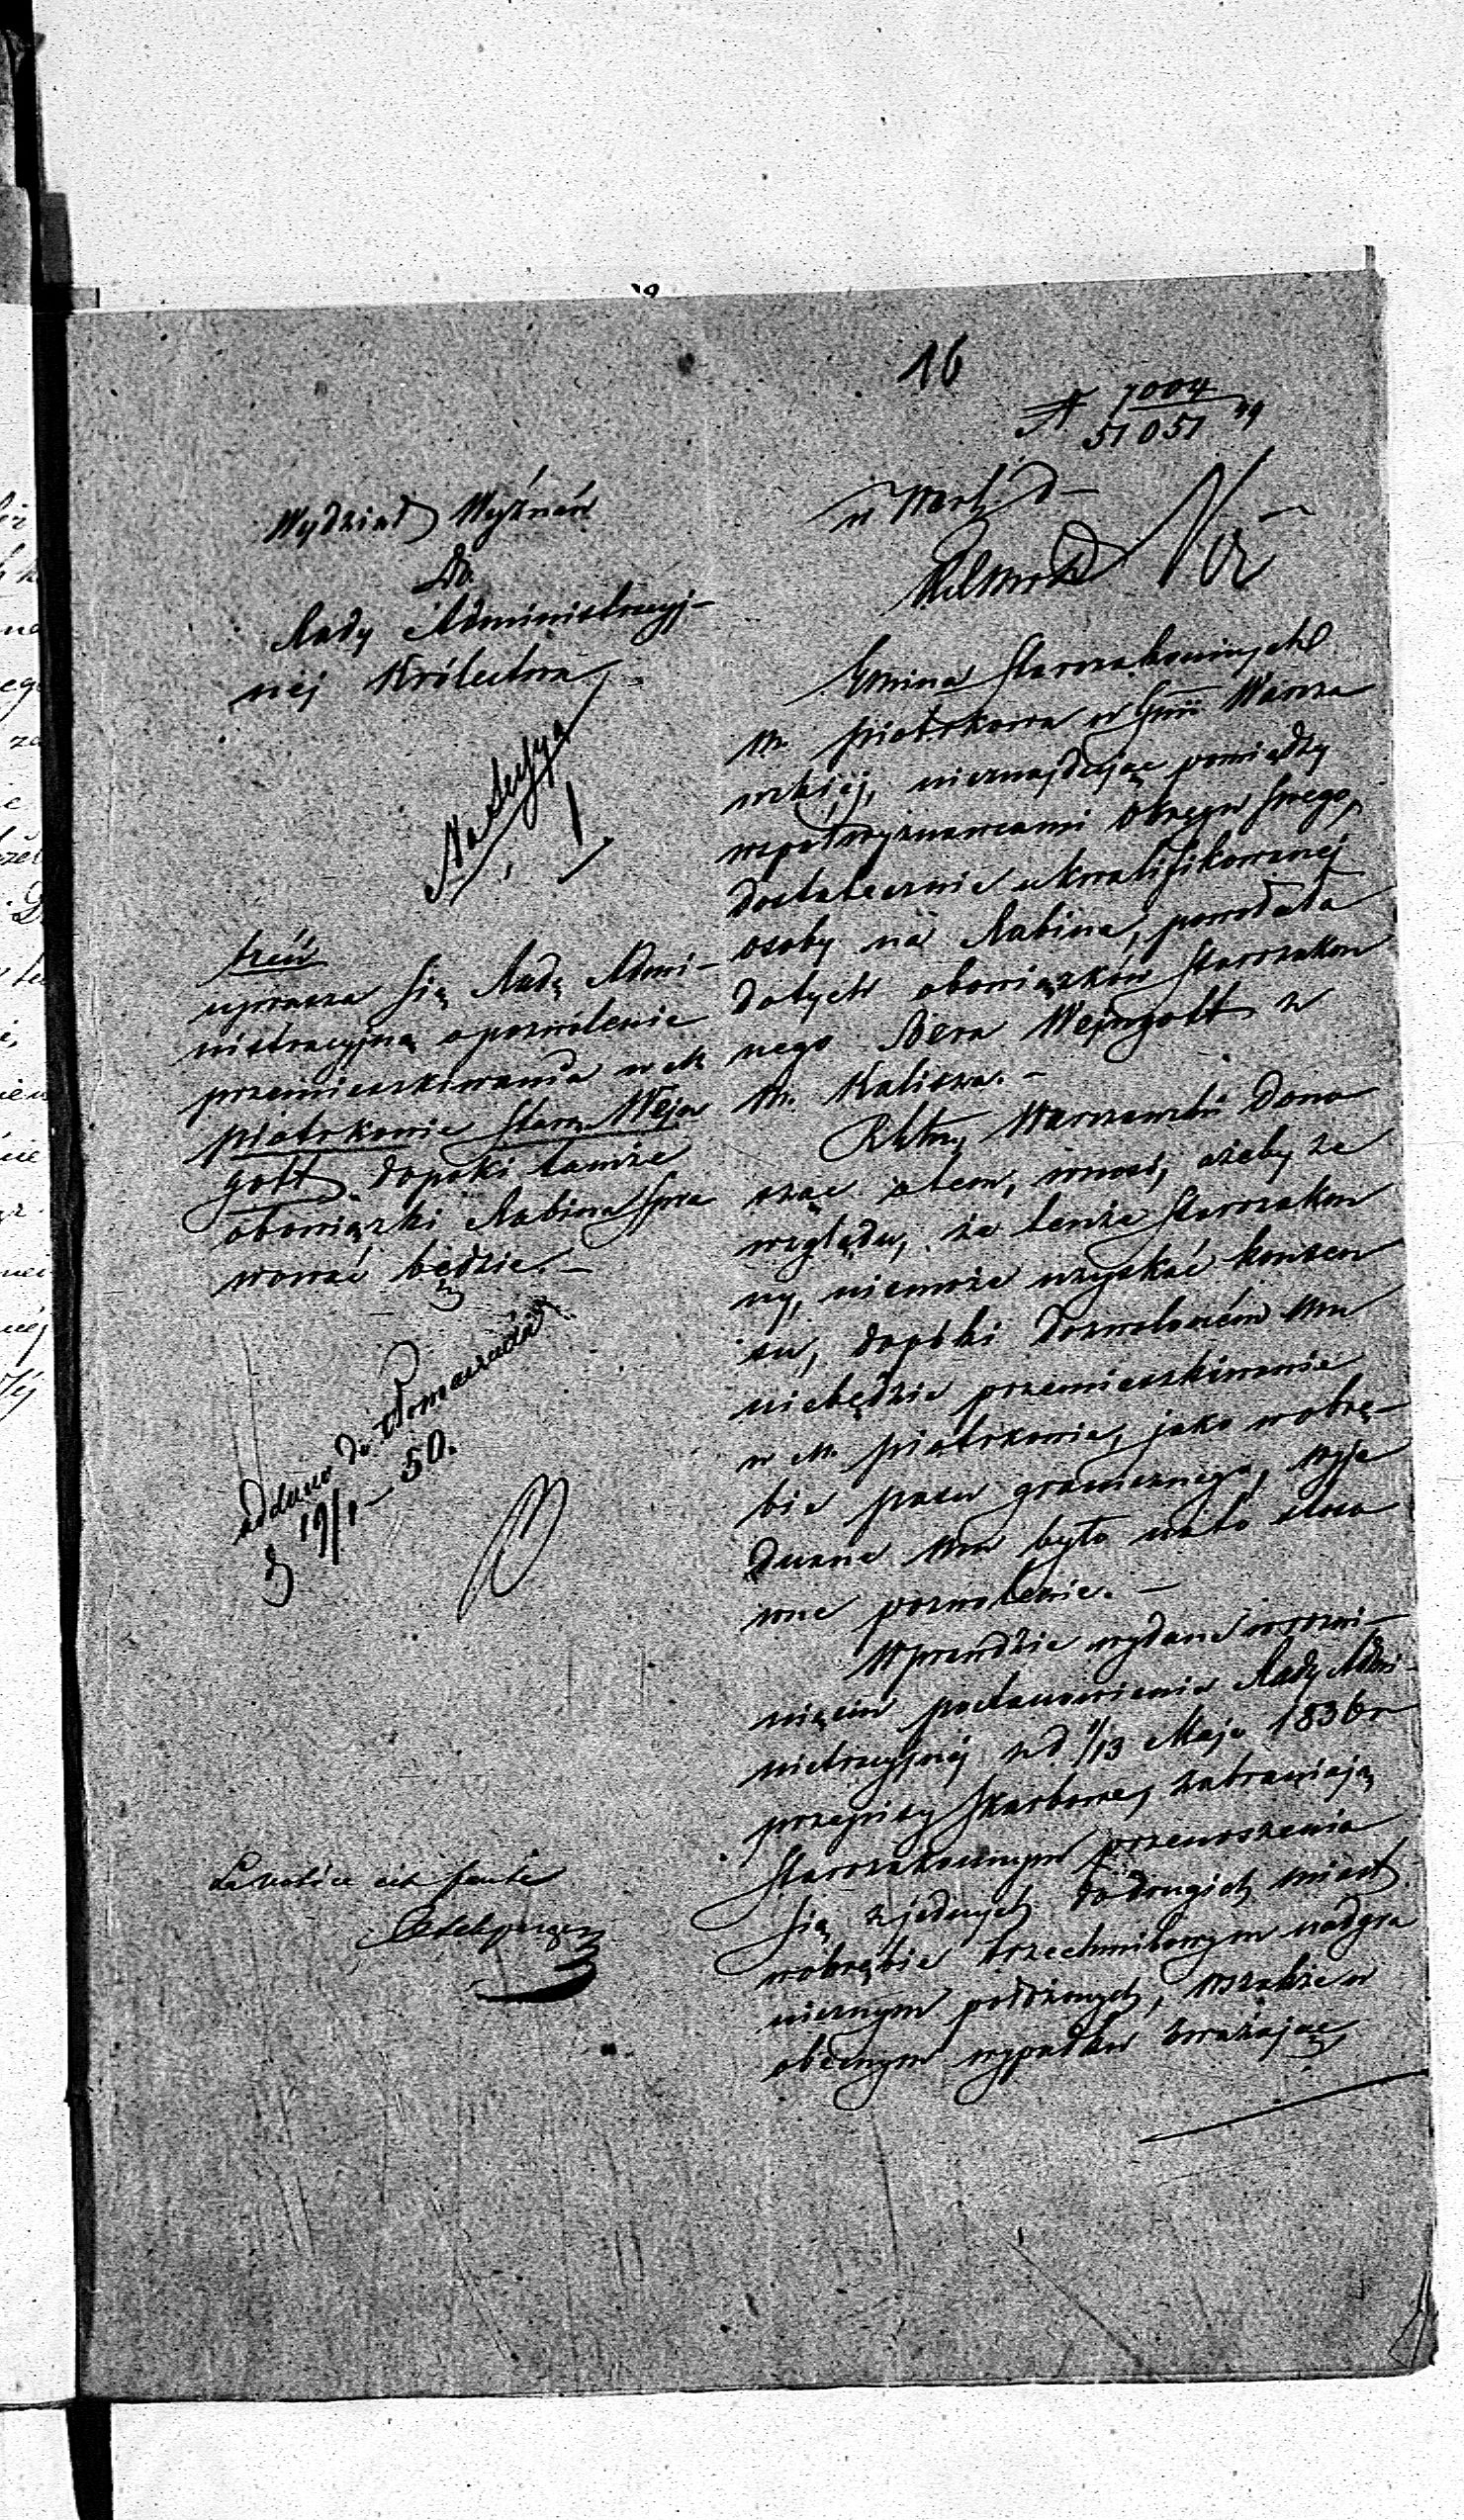 16
7004
51051 49
Wydział Wyznań
Do
Rady Administracyj-
nej Królestwa
Na Sessyą
treść
uprasza się Radę Admi-
nistracyjną o pozwolenie
przemieszkiwania w M.
Piotrkowie Starz. Wejn
gott dopóki tamże
obowiązki Rabina spra
wować będzie. –
oddano do tłomaczenia
d 19/1 – 50.
w Warsz. d –
Gmina Starozakonnych
M. Piotrkowa w Gnii Warsza
wskiej, nieznajdując pomiędzy
współwyznawcami okręgu swego,
dostatecznie ukwalifikowanej
osoby na Rabina, powołała
do tych obowiązków Starozakon
nego Bera Wejngott z
M. Kalisza. –
Rząd Gub. Warszawski dono
sząc o tem, wnosi, ażeby ze
względu, że tenże Starozakon
ny, niemoże uzyskać konsen
su, dopóki dozwolonem mu
niebędzie przemieszkiwanie
w M. Piotrkowie, jako w obrę-
bie pasu granicznego, wyje
dnane mu było na to stoso
wne pozwolenie. –
Wprawdzie wydane w rozwi-
nięciu postanowienia Rady Admi-
nistracyjnej z d. 1/13 Maja 1836 r
przepisy Skarbowe, zabraniają
Starozakonnym przenoszenia
się z jednych do drugich miast
w obrębie trzechmilowym nadgra
nicznym położonych, wszakże w
obecnym wypadku zważając,